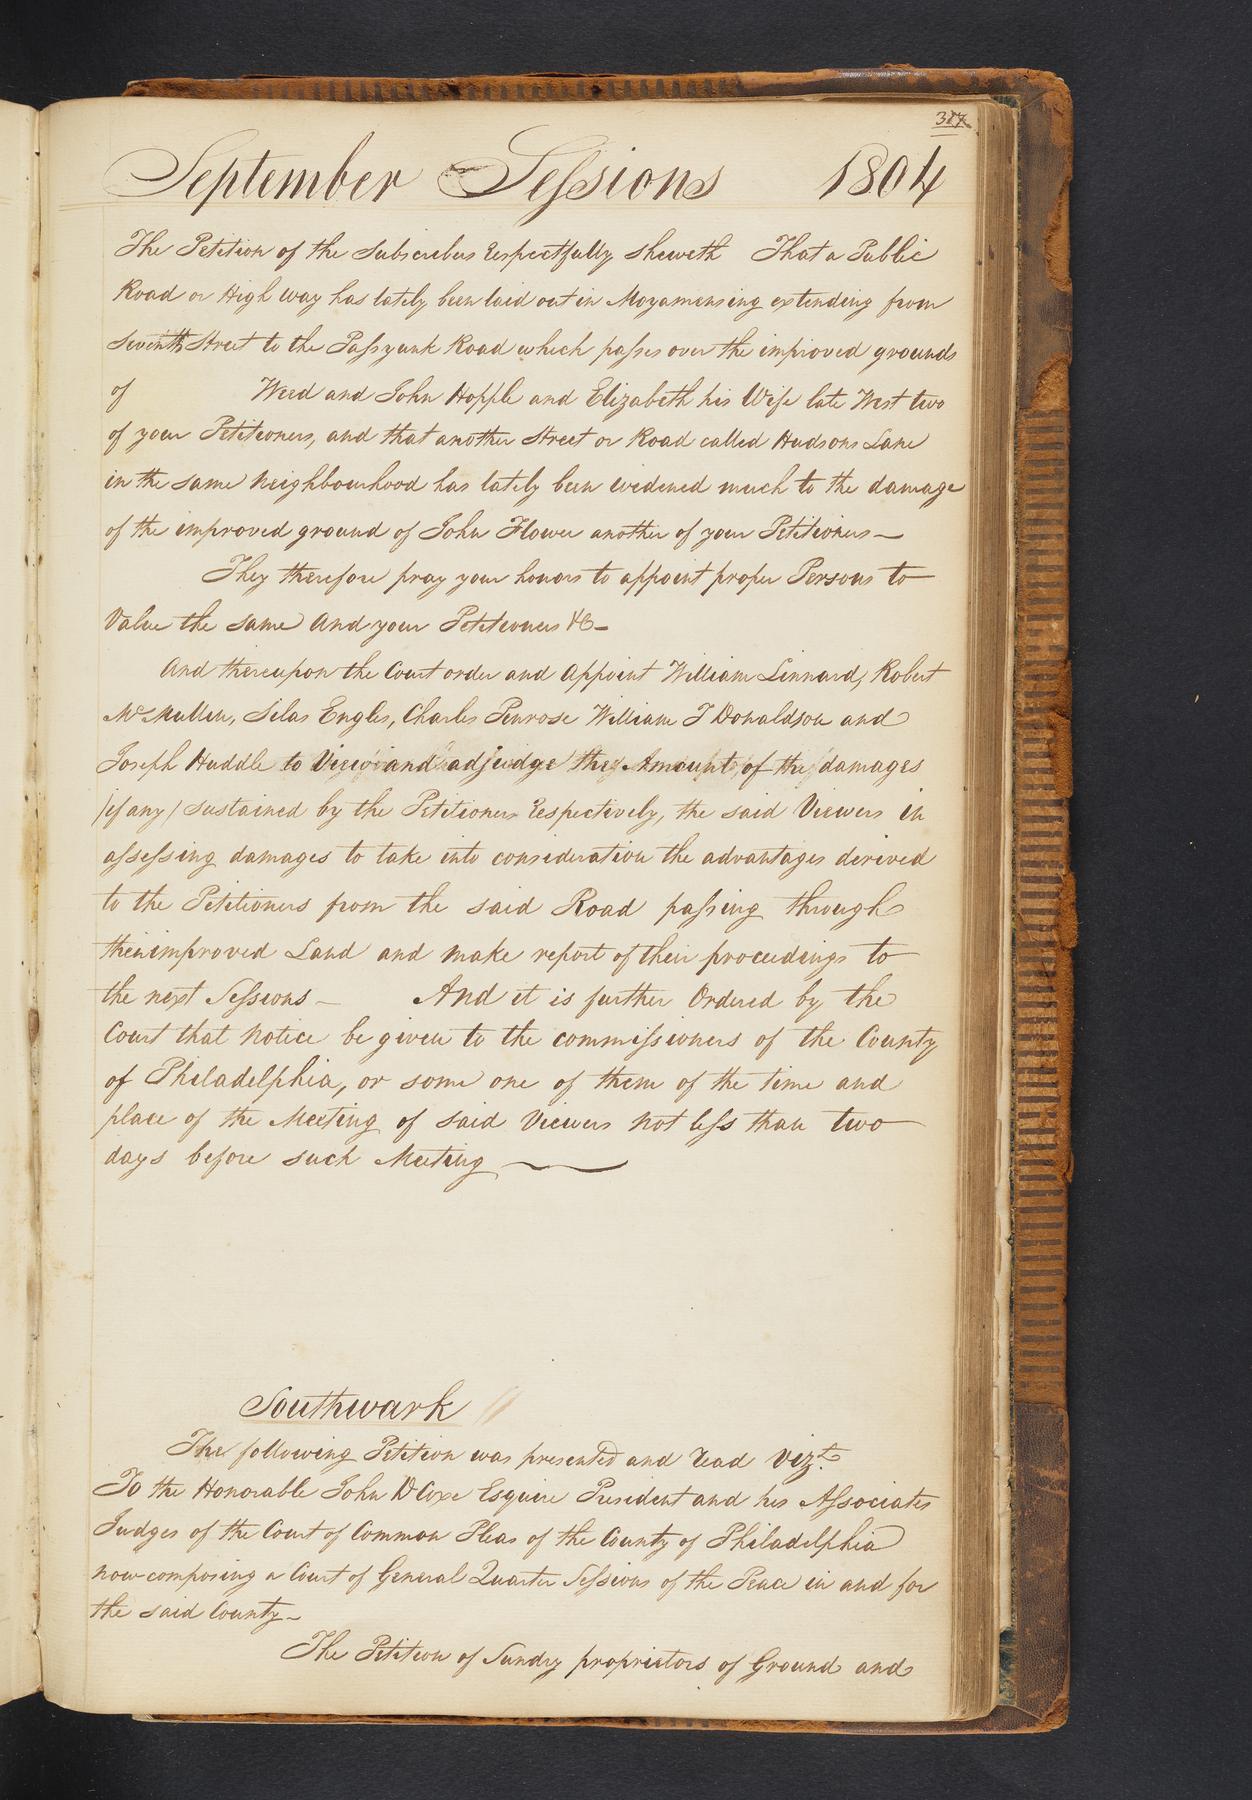 317
September Sessions 1804
The Petition of the Subscribers respectfully sheweth That a Public
Road or High way has lately been laid out in Moyamensing extending from
Seventh Street to the Passyunk Road which passes over the improved grounds
of Weed and John Hopple and Elizabeth his Wife late West two
of your Petitioners, and that another Street or Road called Hudsons Lane
in the same Neighbourhood has lately been widened much to the damage
of the improved ground of John Flower another of your Petitioners —
They therefore pray your honors to appoint proper Persons to
Value the same And your Petitioners &c —
And thereupon the Court order and Appoint William Linnard, Robert
McMullen, Silas Engles, Charles Penrose William T Donaldson and
Joseph Huddle to View and adjudge the Amount of the damages
/if any/ sustained by the Petitioners respectively, the said Viewers in
assessing damages to take into consideration the advantages derived
to the Petitioners from the said Road passing through
their improved Land and make report of their proceedings to
the next Sessions — And it is further Ordered by the
Court that Notice be given to the commissioners of the County
of Philadelphia, or some one of them of the time and
place of the Meeting of said Viewers not less than two
days before such Meeting —
Southwark
The following Petition was presented and read vizt.
To the Honorable John D Coxe Esquire President and his Associates
Judges of the Court of Common Pleas of the County of Philadelphia
now composing a Court of General Quarter Sessions of the Peace in and for
the said County —
The Petition of Sundry proprietors of Ground and